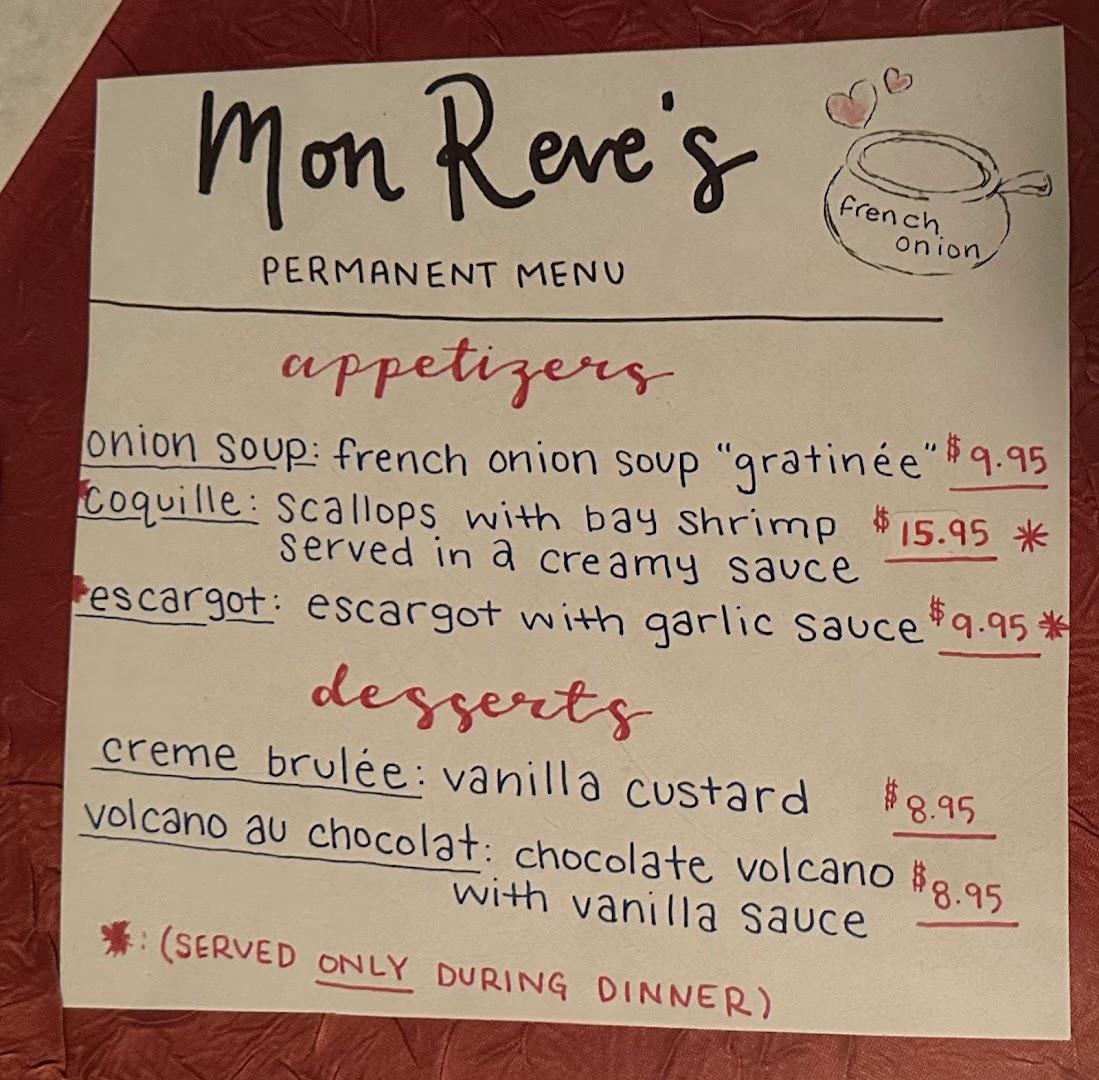 Mon Reve's
french
onion
PERMANENT MENU
appetizers
onion soup: french onion soup "gratinée" $9.95
coquille: scallops with bay shrimp $15.95 *
served in a creamy sauce
escargot: escargot with garlic sauce $9.95 *
desserts
creme brulée: vanilla custard $8.95
volcano au chocolat: chocolate volcano $8.95
with vanilla sauce
*: (SERVED ONLY DURING DINNER)